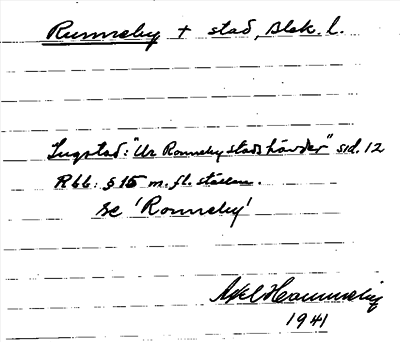 Runneby + stad, Blek. l.
Ingstad: "Ur Ronneby stads hävder" sid. 12
Rbb: § 15 m. fl. ställen.
se 'Ronneby'
Axel
1941